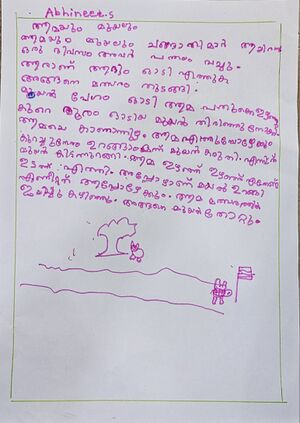 Abhineet.s
ആമയും മുയലും
ആമയും മുയലും ചങ്ങാതിമാർ ആയിരുന്നു
ഒരു ദിവസം അവർ പന്തയം വച്ചു.
ആരാണ് ആദ്യം ഓടി എത്തുക
അങ്ങനെ മത്സരം തുടങ്ങി.
മുയൽ വേഗം ഓടി ആമ പതുക്കെ ഇഴഞ്ഞു
കുറെ ദൂരം ഓടിയ മുയൽ തിരിഞ്ഞു നോക്കി
ആമയെ കാണാനില്ല. ആമ എത്തുമ്പോഴേക്കും
കുറച്ചുനേരം ഉറങ്ങാമെന്ന് മുയൽ കരുതി.
മുയൽ കിടന്നുറങ്ങി. ആമ ഇഴഞ്ഞ് ഇഴഞ്ഞ്
എത്തി. അപ്പോഴാണ് മുയൽ ഉറങ്ങി
എണീറ്റത് അപ്പോഴേക്കും ആമ മത്സരത്തിൽ
ജയിച്ചു കഴിഞ്ഞു. അങ്ങനെ മുയൽ തോറ്റു.